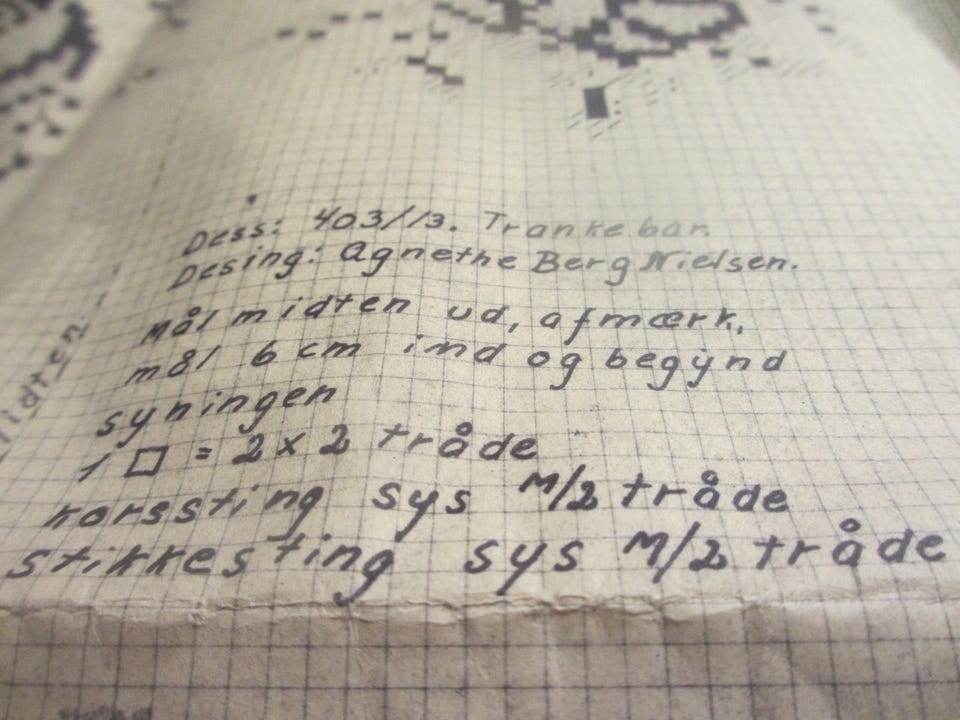 Dess: 403/13. Trankebar.
Desing: Agnethe Berg Nielsen.
mål midten ud, afmærk,
mål 6 cm ind og begynd
syningen
1 □ = 2 x 2 tråde
korssting sys M/2 tråde
stikkesting sys M/2 tråde
Midten